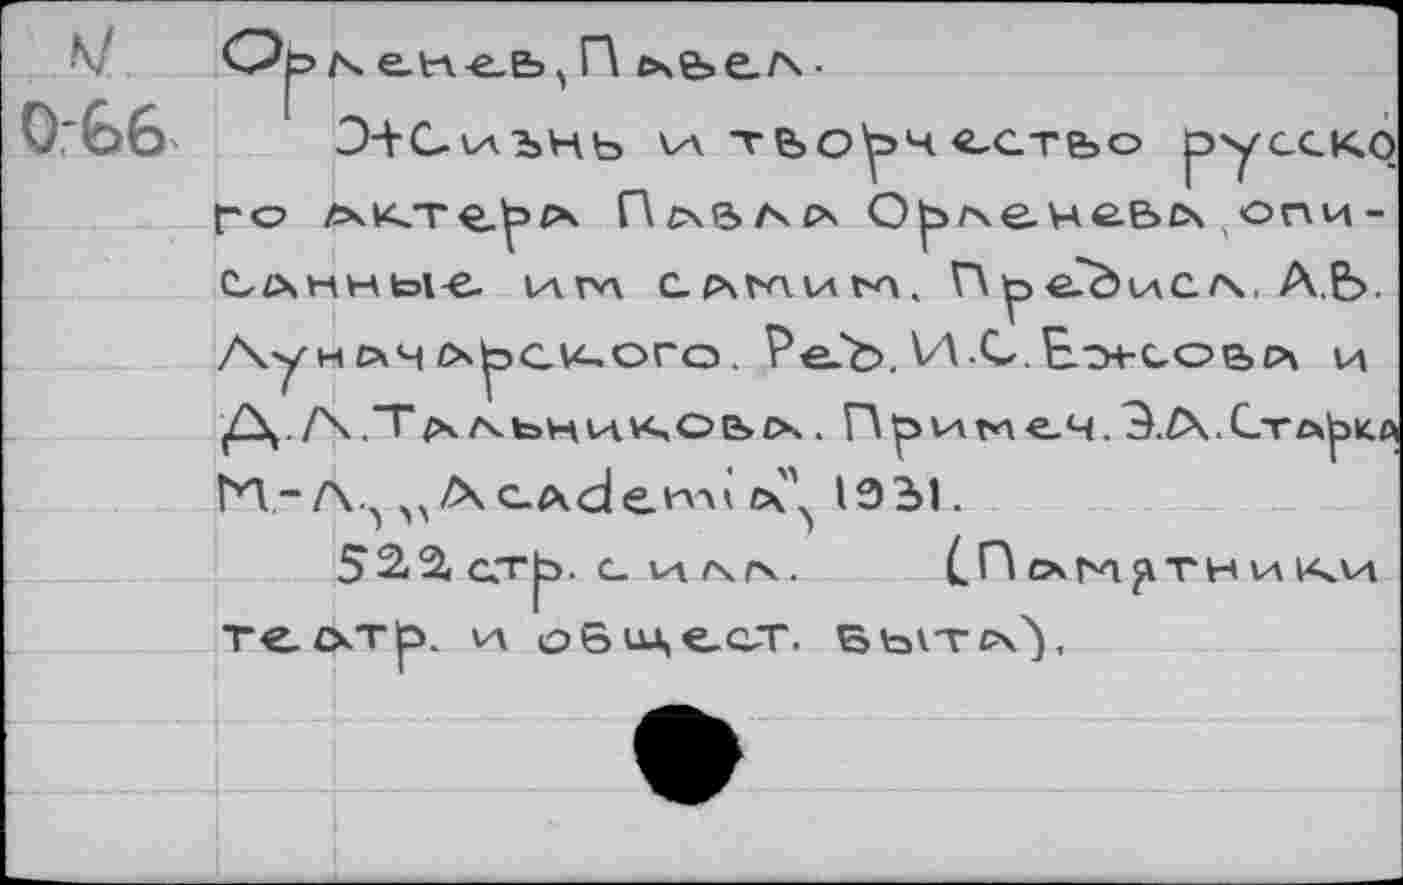 V Орленев, Павел.
О-66 Жизнь и творчество русско
го актера Павла Орленева, опи-
санные им самим. Предисл. А.В.
Луначарского. Ред. И.С.Ежсова и
Д.Л.Тальникова. Примеч. Э.А.Старка
М.-Л., "Academia", 1931.
522 стр. с илл. (Памятники
театр. и общест. быта),